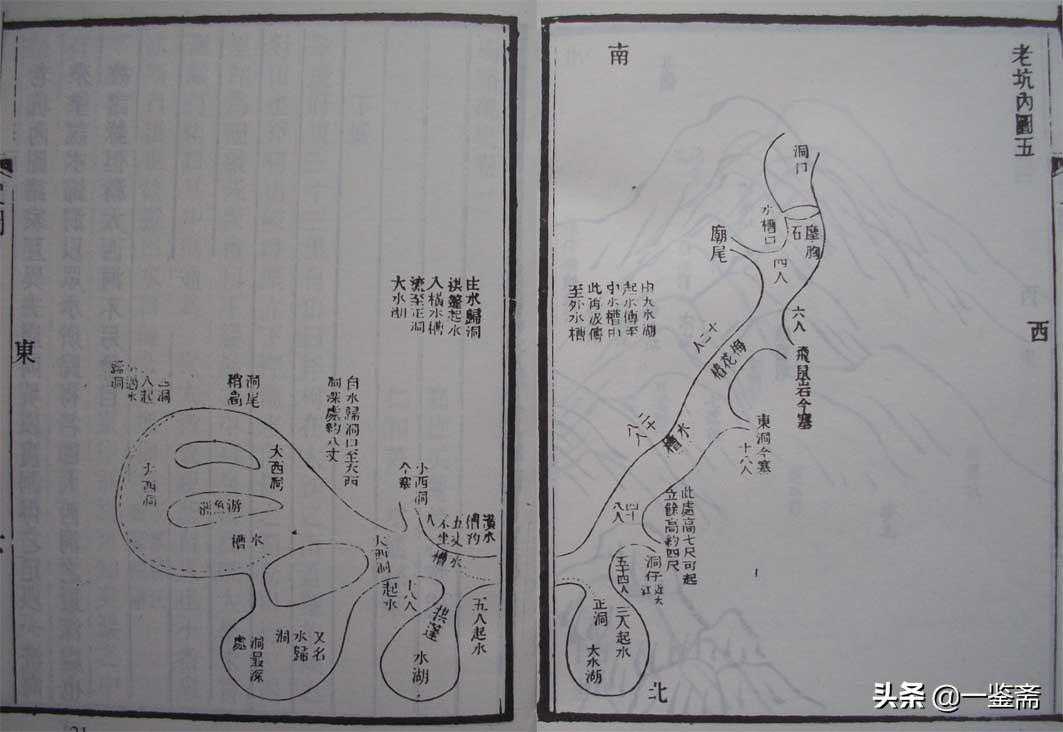 老坑內圖五
南
西
北
東
洞口
水槽口
摩胸
石
四人
廟尾
六人
飛鼠岩今塞
十二人
梅花樁
由大水湖
起水傳至
小水槽由
此再汲傳
至外水槽
水槽
東洞今塞
十六人
此處高七尺可起
立餘高約四尺
四十八人
洞仔
五十四人
正洞
三人起水
大水湖
由水歸洞
拱篷起水
入橫水槽
流至正洞
大水湖
自水歸洞口至大西
洞深處約八丈
洞尾
稍高
大西洞
大西洞
游魚洲
水槽
小西洞
今塞
橫水
槽約
五丈
不坐
人
水槽
大西洞
起水
十八人
拱篷
水湖
五人起水
又名
水歸
洞
洞最深
處
21
头条 @一鉴斋